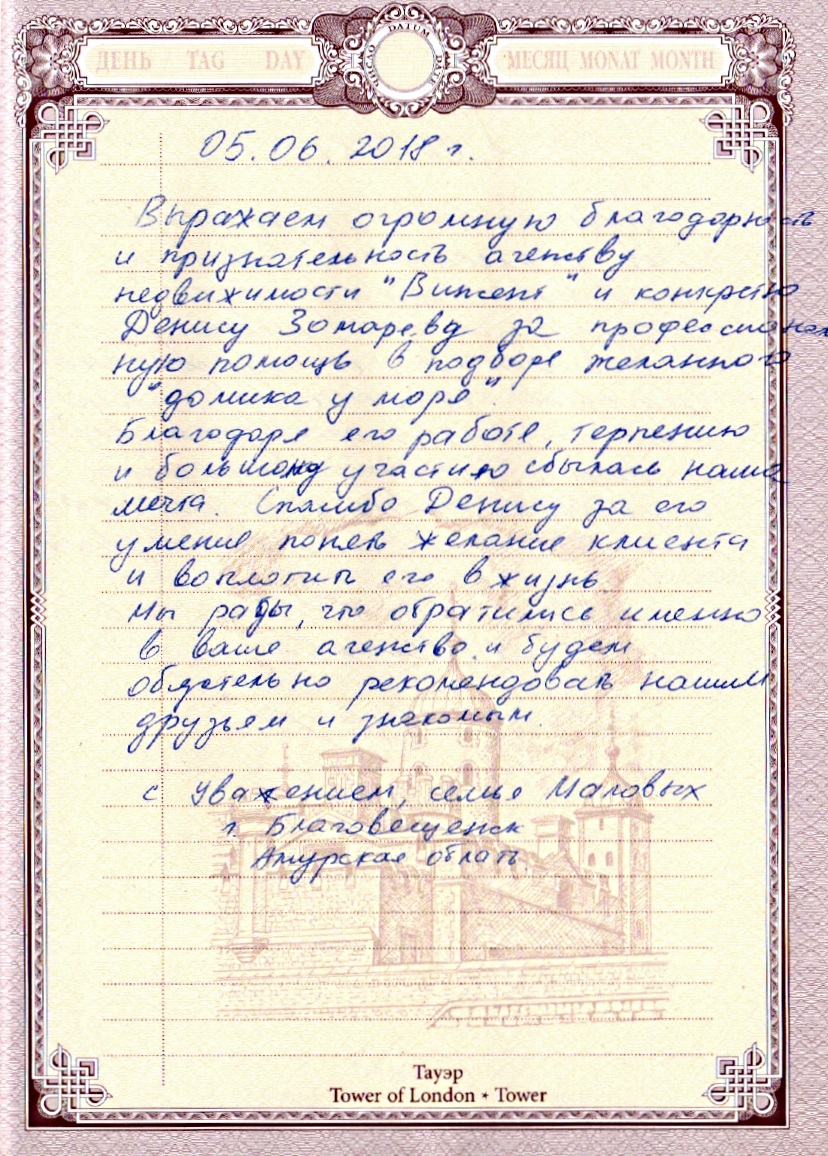 ДЕНЬ TAG DAY ЧИСЛО DATUM DATE МЕСЯЦ MONAT MONTH
05.06.2018 г.
Выражаем огромную благодарность
и признательность агенству
недвижимости "Винсент" и конкретно
Денису за профессиональ
ную помощь в подборе желанного
"домика у моря".
Благодоря его работе, терпению
и большому участию сбылась наша
мечта. Спасибо Денису за его
умение понять желание клиента
и воплотить его в жизнь.
Мы рады, что обратились именно
в ваше агенство и будем
обязательно рекомендовать нашим
друзьям и знакомым.
с уважением, семья Маловых
г. Благовещенск
Амурская область.
Тауэр
Tower of London * Tower